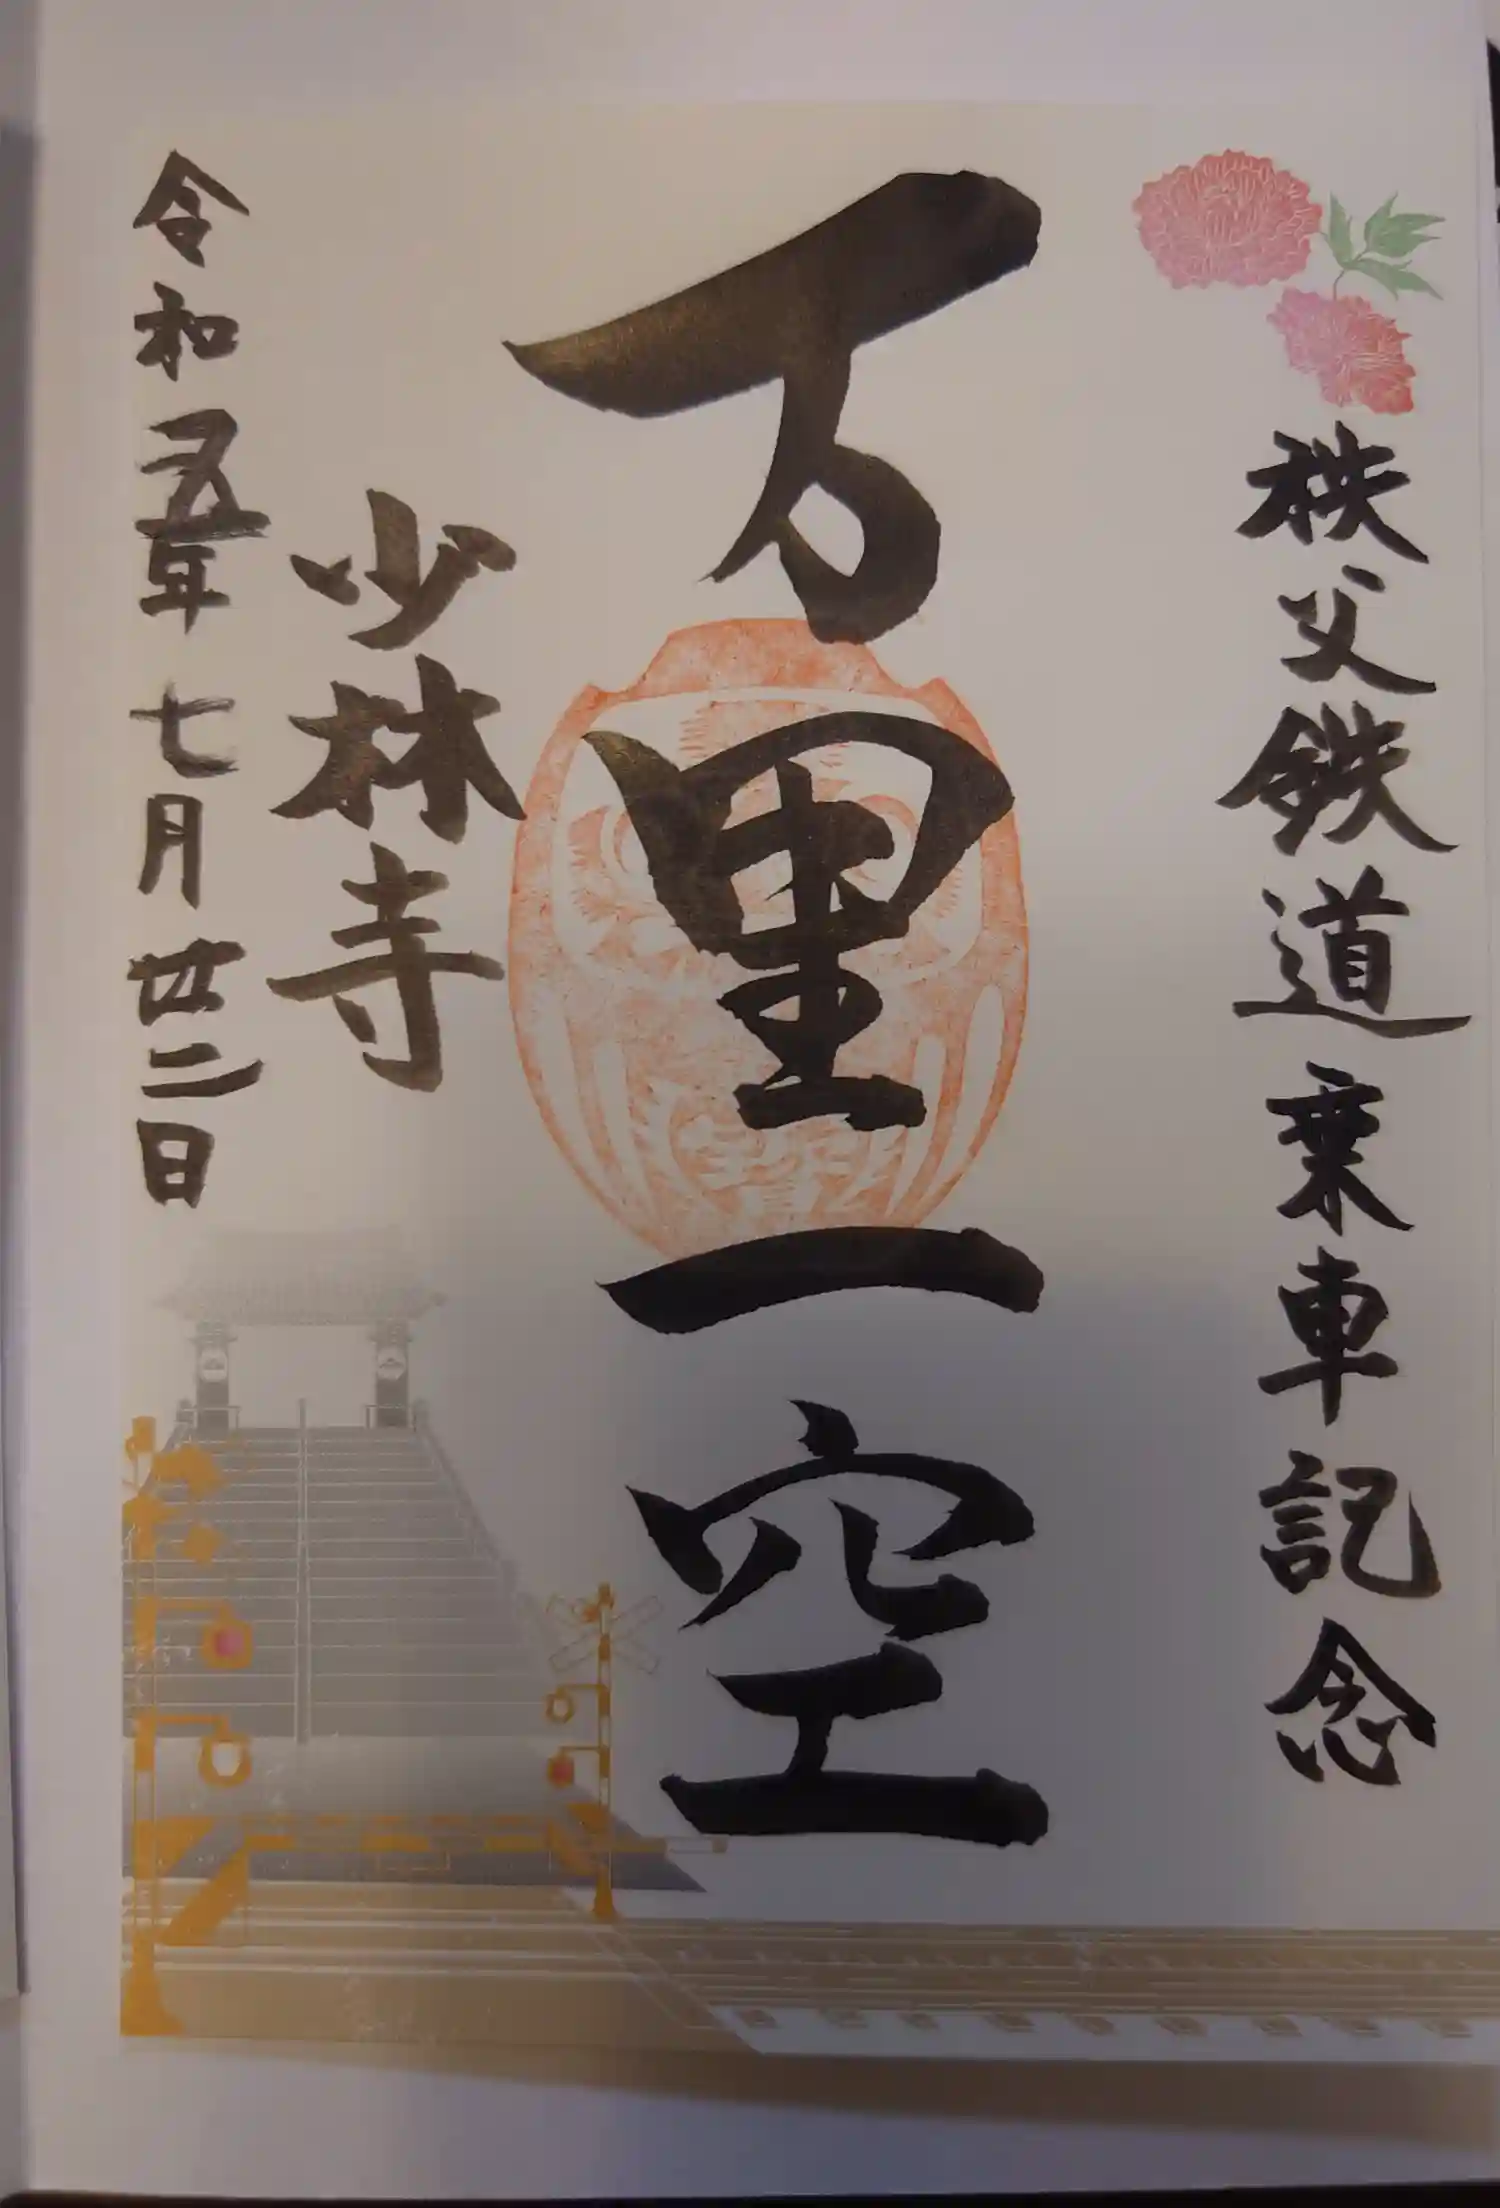 秩父鉄道乗車記念
万里一空
少林寺
令和五年七月廿二日